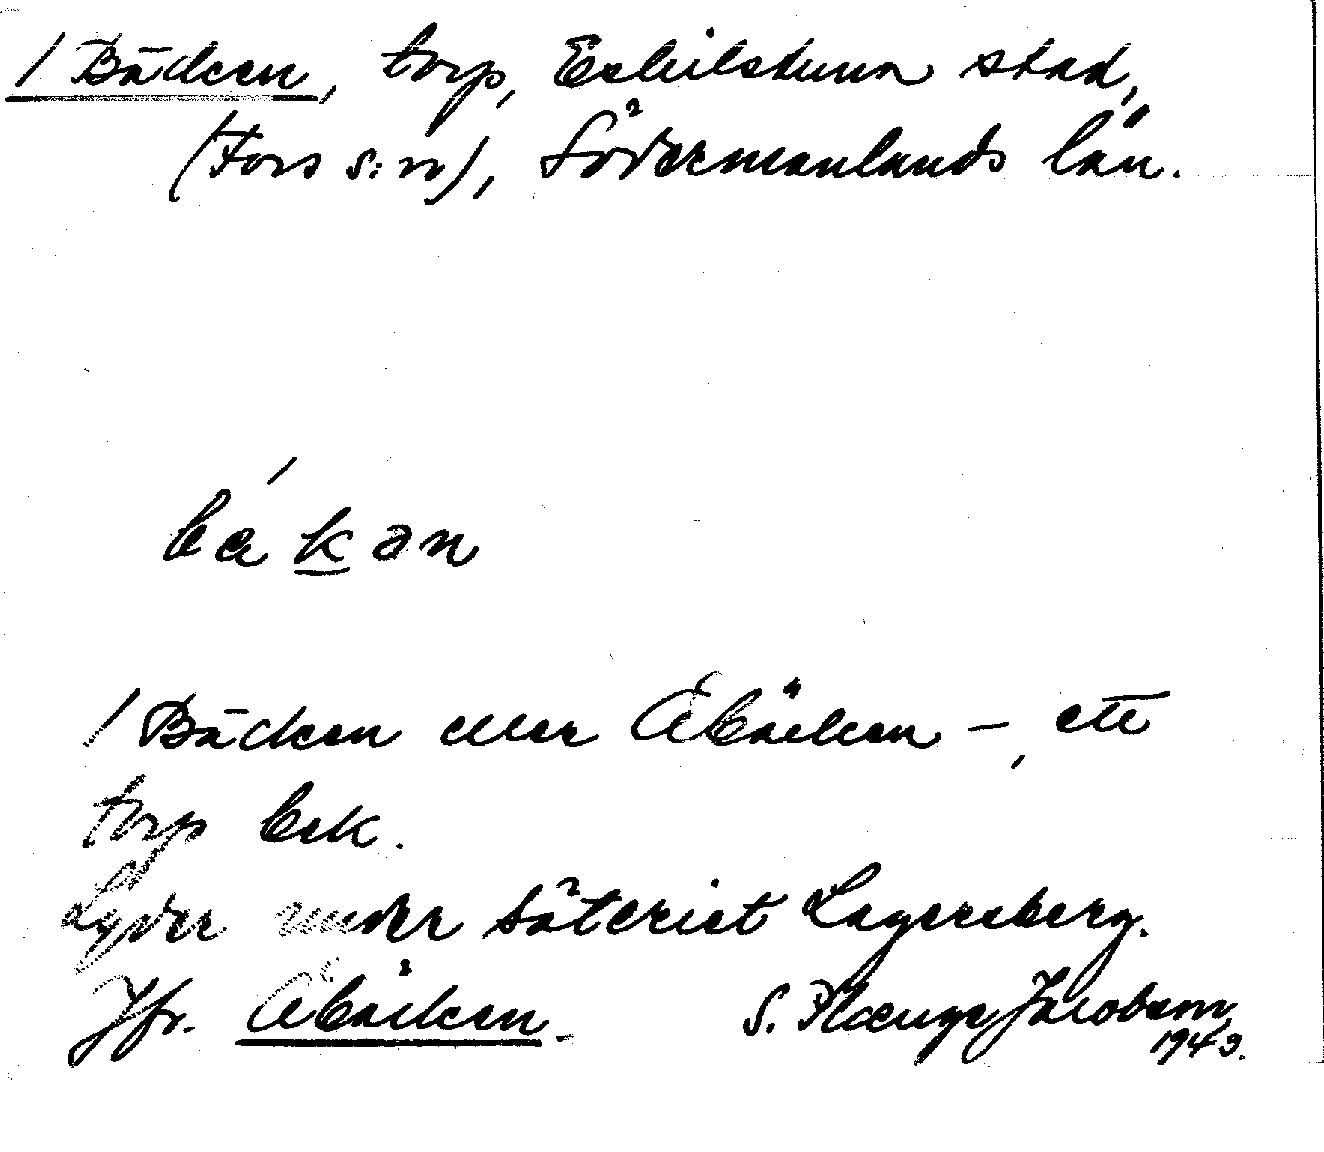 / Bäcken, torp, Eskilstuna stad,
(Fors s:n), Södermanlands län.
bákən
/ Bäcken eller Åbäcken –, ett
torp bek.
Lyder under säteriet Lagersberg.
Jfr. Åbäcken.
S. Plænge Jacobson
1943.